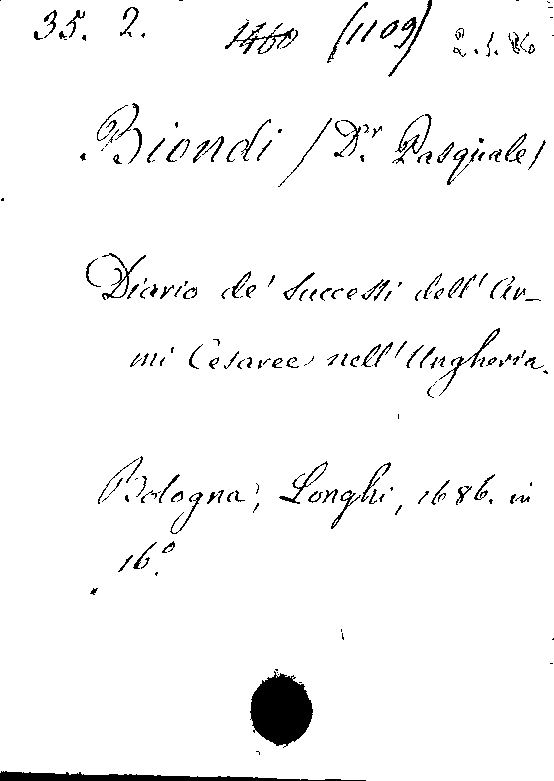 35. 2. 1460 (1109)
Biondi (Dr. Pasquale)
Diario de' successi dell' Ar-
mi Cesaree nell' Ungheria.
Bologna, Longhi, 1686. in
16.º